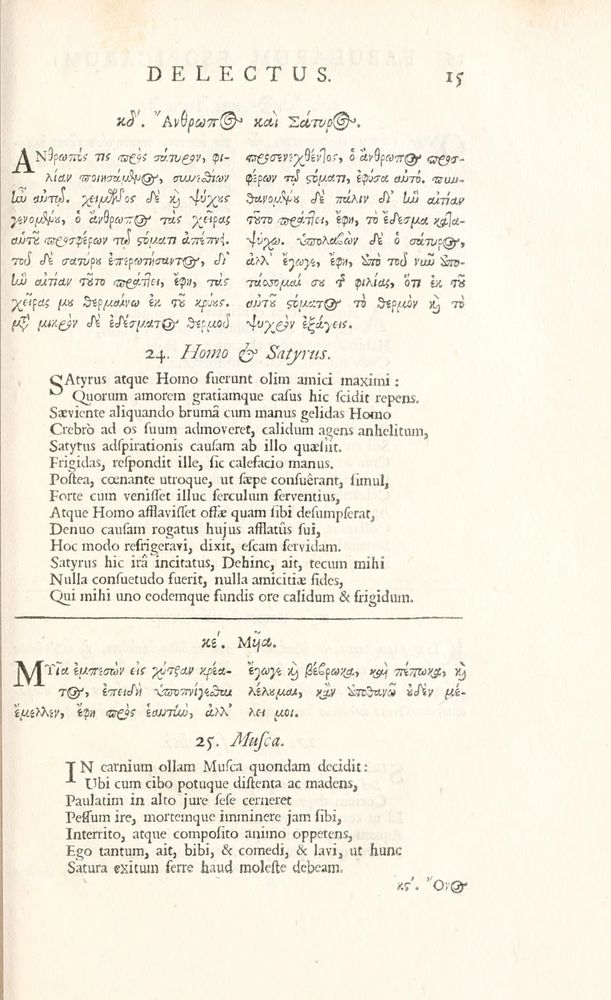 DELECTUS. 15
κδʹ. Ἄνθρωπος καὶ Σάτυρος.
ΑΝθρωπός τις πρὸς σάτυρον, φι-
λίαν ποιησάμενος, συνεσθίων
ἦν αὐτῷ. χειμῶνος δὲ κ̀ ψύχους
γενομένου, ὁ ἄνθρωπος τὰς χεῖρας
αὐτοῦ προσφέρων τῷ στόματι ἀπέπνει.
τοῦ δὲ σατύρου ἐπερωτήσαντος, δι'
ἣν αἰτίαν τοῦτο πράττει, ἔφη, τὰς
χεῖρας μου θερμαίνω ἐκ τοῦ κρύους.
μετὰ μικρὸν δὲ ἐδέσματος θερμοῦ
προσενεχθέντος, ὁ ἄνθρωπος προσ-
φέρων τῷ στόματι, ἐφύσα αὐτό. πυν-
θανομένου δὲ πάλιν δι' ἣν αἰτίαν
τοῦτο πράττει, ἔφη, τὸ ἔδεσμα κατα-
ψύχω. ὑπολαβὼν δὲ ὁ σάτυρος,
ἀλλ' ἔγωγε, ἔφη, ἀπὸ τοῦ νῦν ἀπο-
τάσσομαί σου τῆς φιλίας, ὅτι ἐκ τοῦ
αὐτοῦ στόματος τὸ θερμὸν κ̀ τὸ
ψυχρὸν ἐξάγεις.
24. Homo & Satyrus.
SAtyrus atque Homo fuerunt olim amici maximi:
Quorum amorem gratiamque casus hic scidit repens.
Sæviente aliquando brumâ cum manus gelidas Homo
Crebrò ad os suum admoveret, calidum agens anhelitum,
Satyrus adspirationis causam ab illo quæsiit.
Frigidas, respondit ille, sic calefacio manus.
Postea, cœnante utroque, ut sæpe consuêrant, simul,
Forte cum venisset illuc ferculum ferventius,
Atque Homo afflavisset offæ quam sibi desumpserat,
Denuo causam rogatus hujus afflatûs sui,
Hoc modo refrigeravi, dixit, escam fervidam.
Satyrus hic irâ incitatus, Dehinc, ait, tecum mihi
Nulla consuetudo fuerit, nulla amicitiæ fides,
Qui mihi uno eodemque fundis ore calidum & frigidum.
κεʹ. Μῦα.
ΜΥῖα ἐμπεσὼν εἰς χύτραν κρέα-
τος, ἐπειδὴ ἀποπνίγεσθαι
ἔμελλεν, ἔφη πρὸς ἑαυτὴν, ἀλλ'
ἔγωγε κ̀ βέβρωκα, καὶ πέπωκα, κ̀
λέλουμαι, κἂν ἀποθανῶ οὐδὲν μέ-
λει μοι.
25. Musca.
IN carnium ollam Musca quondam decidit:
Ubi cum cibo potuque distenta ac madens,
Paulatim in alto jure sese cerneret
Pessum ire, mortemque imminere jam sibi,
Interrito, atque composito animo oppetens,
Ego tantum, ait, bibi, & comedi, & lavi, ut hunc
Satura exitum ferre haud moleste debeam.
κϛʹ. Ὄνος